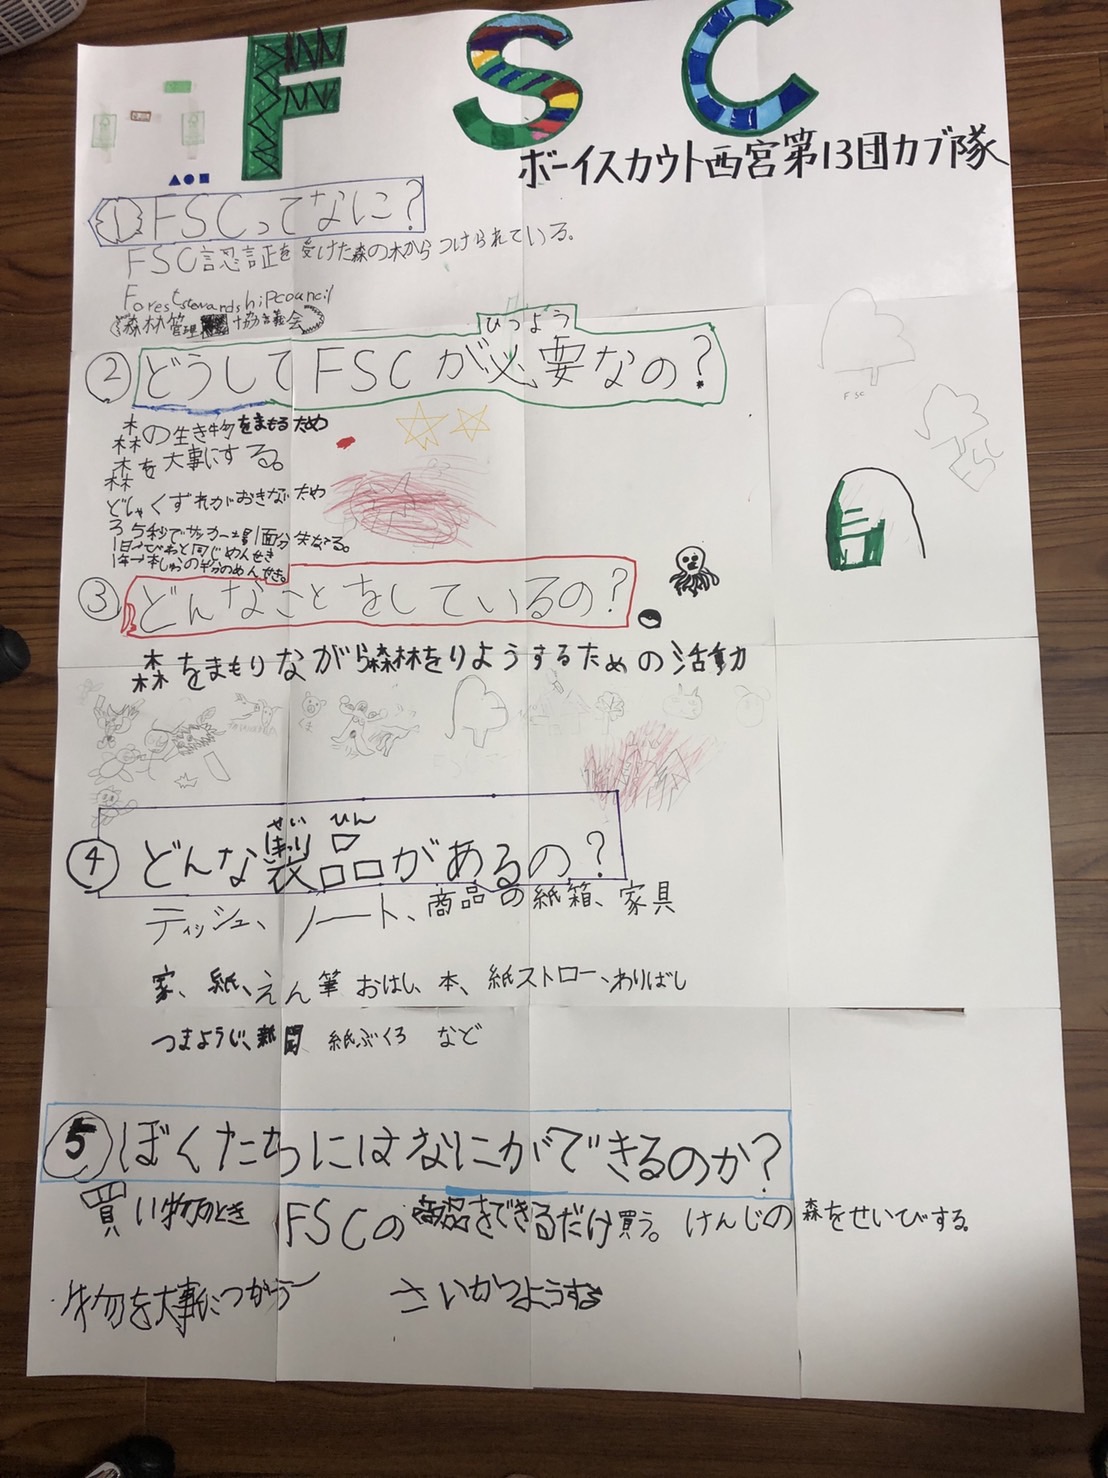 FSC
ボーイスカウト西宮第13団カブ隊
① FSCってなに？
FSC認証を受けた森の木からつけられている。
Forest stewardship council
森林管理協議会
ひつよう
② どうしてFSCが必要なの？
森の生き物をまもるため
森を大事にする。
どしゃくずれがおきないため
5秒でサッカー場1面分失なる。
1日→びわと同じめんせき
1年→本しゅうの半分のめんせき。
③ どんなことをしているの？
FSC
森をまもりながら森林をりようするための活動
くま
せい ひん
④ どんな製品があるの？
ティッシュ、ノート、商品の紙箱、家具
家、紙、えん筆 おはし、本、紙ストロー、わりばし
つまようじ、紙ぶくろ など
⑤ ぼくたちにはなにができるのか？
買い物のとき FSCの商品をできるだけ買う。けんじの森をせいびする。
物を大事につかう さいかつようする